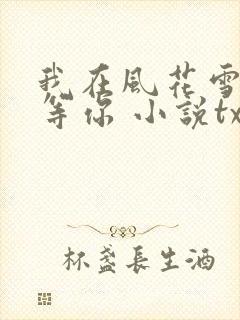 我在風花雪
等你 小說tx
杯盞長生酒